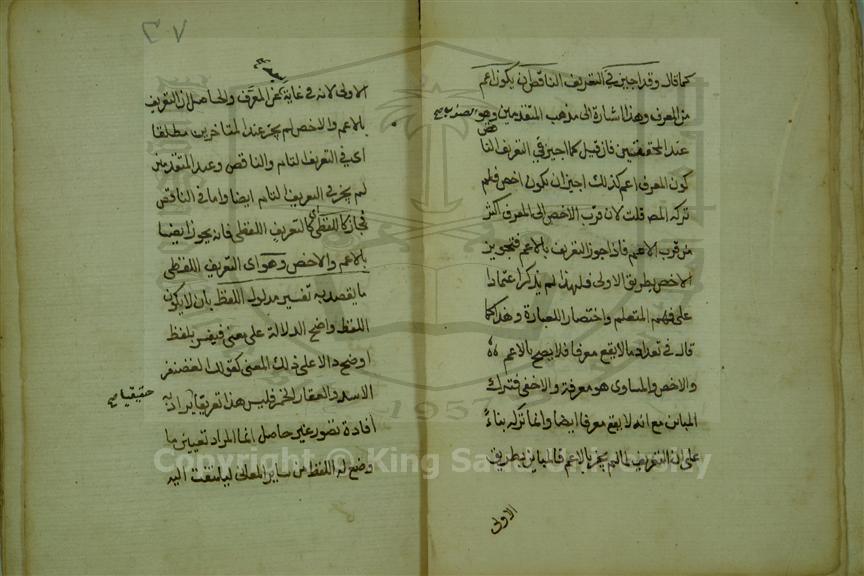 كما قال وقد اجيز في التعريف الناقص ان يكون اعم
من المعرف وهذا اشارة الى مذهب المتقدمين وهو الصواب صح
عند المحققين فان قيل كما اجيز في التعريف الناقص
كون المعرف اعم كذلك اجيز ان يكون اخص فلم
تركه المص قلت لان قرب الاخص الى المعرف اكثر
من قرب الاعم فاذا جوز التعريف بالاعم فتجويز
الاخص بطريق الاولى فلهذا لم يذكر اعتمادا
على فهم المتعلم واختصارا للعبارة وهذا كما
قال في تعداد ما لا يقع معرفا فلا يصح بالاعم
والاخص والمساوى هو معرفة والاخفى فترك
المباين مع انه لا يقع معرفا ايضا وانما تركه بناءً
على ان التعريف لما لم يجز بالاعم فالمباين بطريق
الاولى
٣٧
الاولى لانه في غاية عن المعرَّف والحاصل ان التعريف
بالاعم والاخص لم يجز عند المتاخرين مطلقا
اى في التعريف التام والناقص وعند المتقدمين
لم يجز في التعريف التام ايضا واما في الناقص
فجاز كاللفظى اى كالتعريف اللفظى فانه يجوز ايضا
بالاعم والاخص وهو اى التعريف اللفظى
ما يقصد به تفسير مدلول اللفظ بان لا يكون
اللفظ واضح الدلالة على معنى فيفسر بلفظ
اوضح دالا على ذلك المعنى كقولك الغضنفر
الاسد والعقار الخمر فليس هذا تعريفا يراد به
حقيقيا صح
افادة تصور غير حاصل انما المراد تعيين ما
وضع له اللفظ من ساير المعانى ليلتفت اليه
Copyright © King Saud University
1957